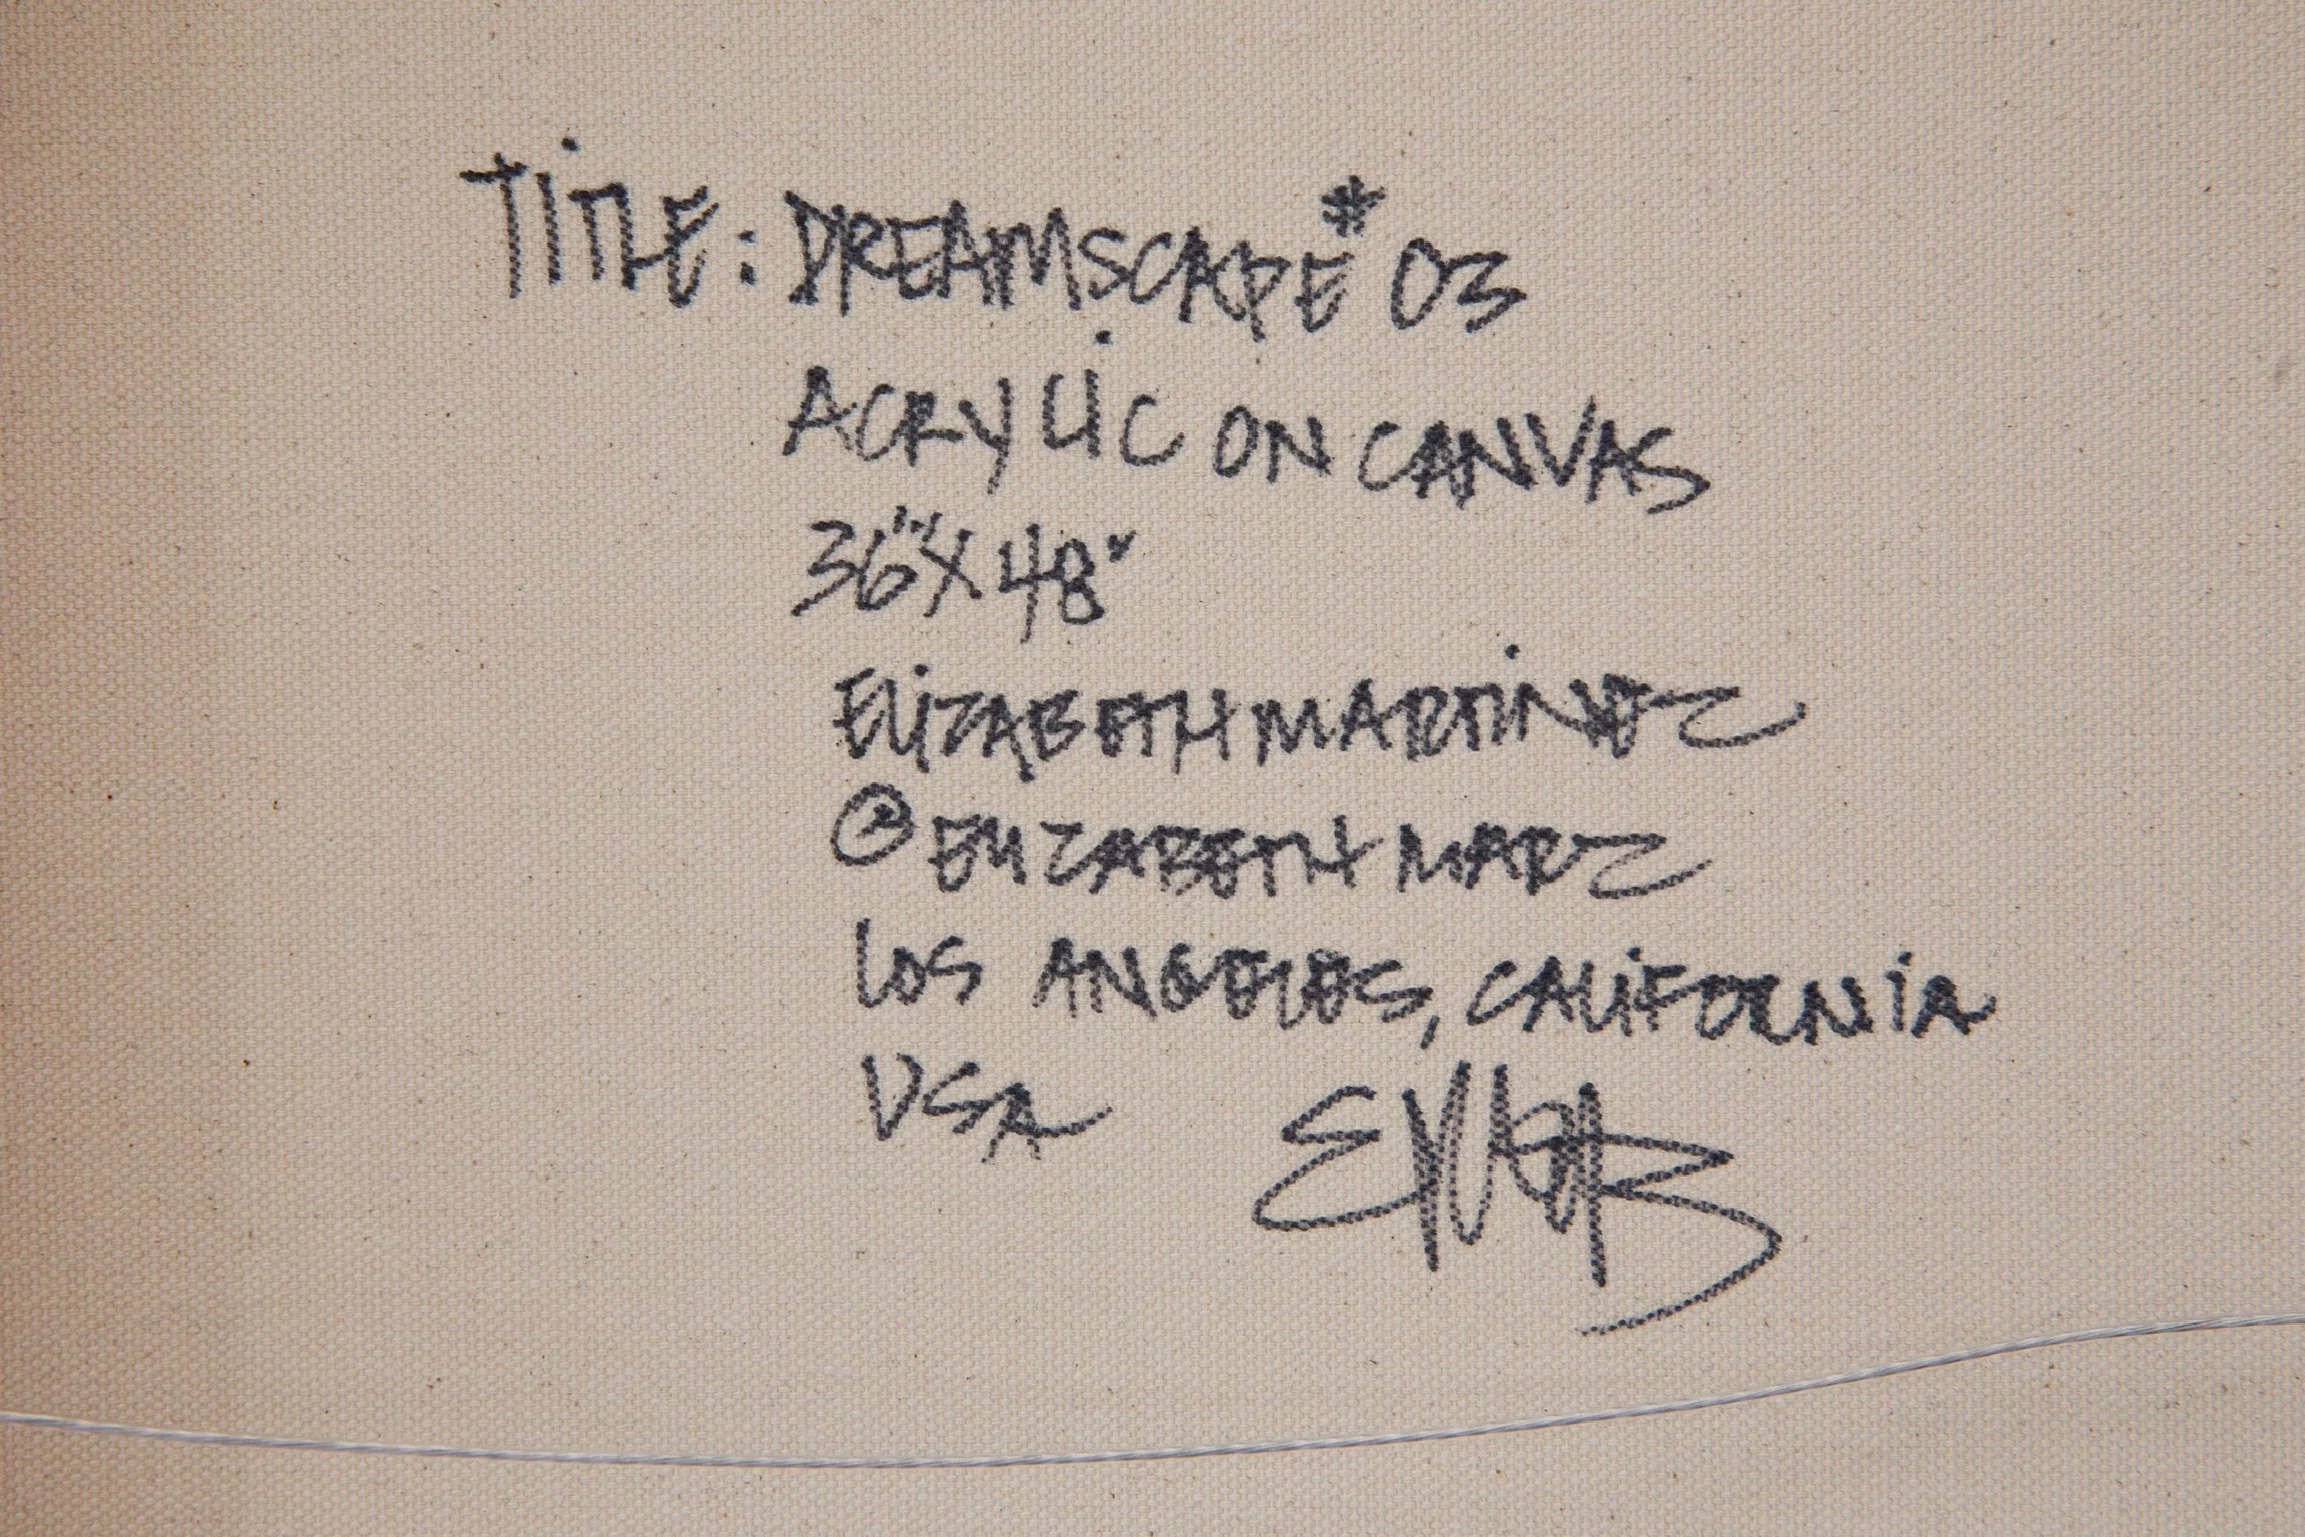 TiTLE: DREAMSCAPE #03
ACRYLiC ON CANVAS
36"X48"
ELiZABETH MARTiNEZ
@ELIZABETHMARZ
LOS ANGELES, CALiFORNiA
USA